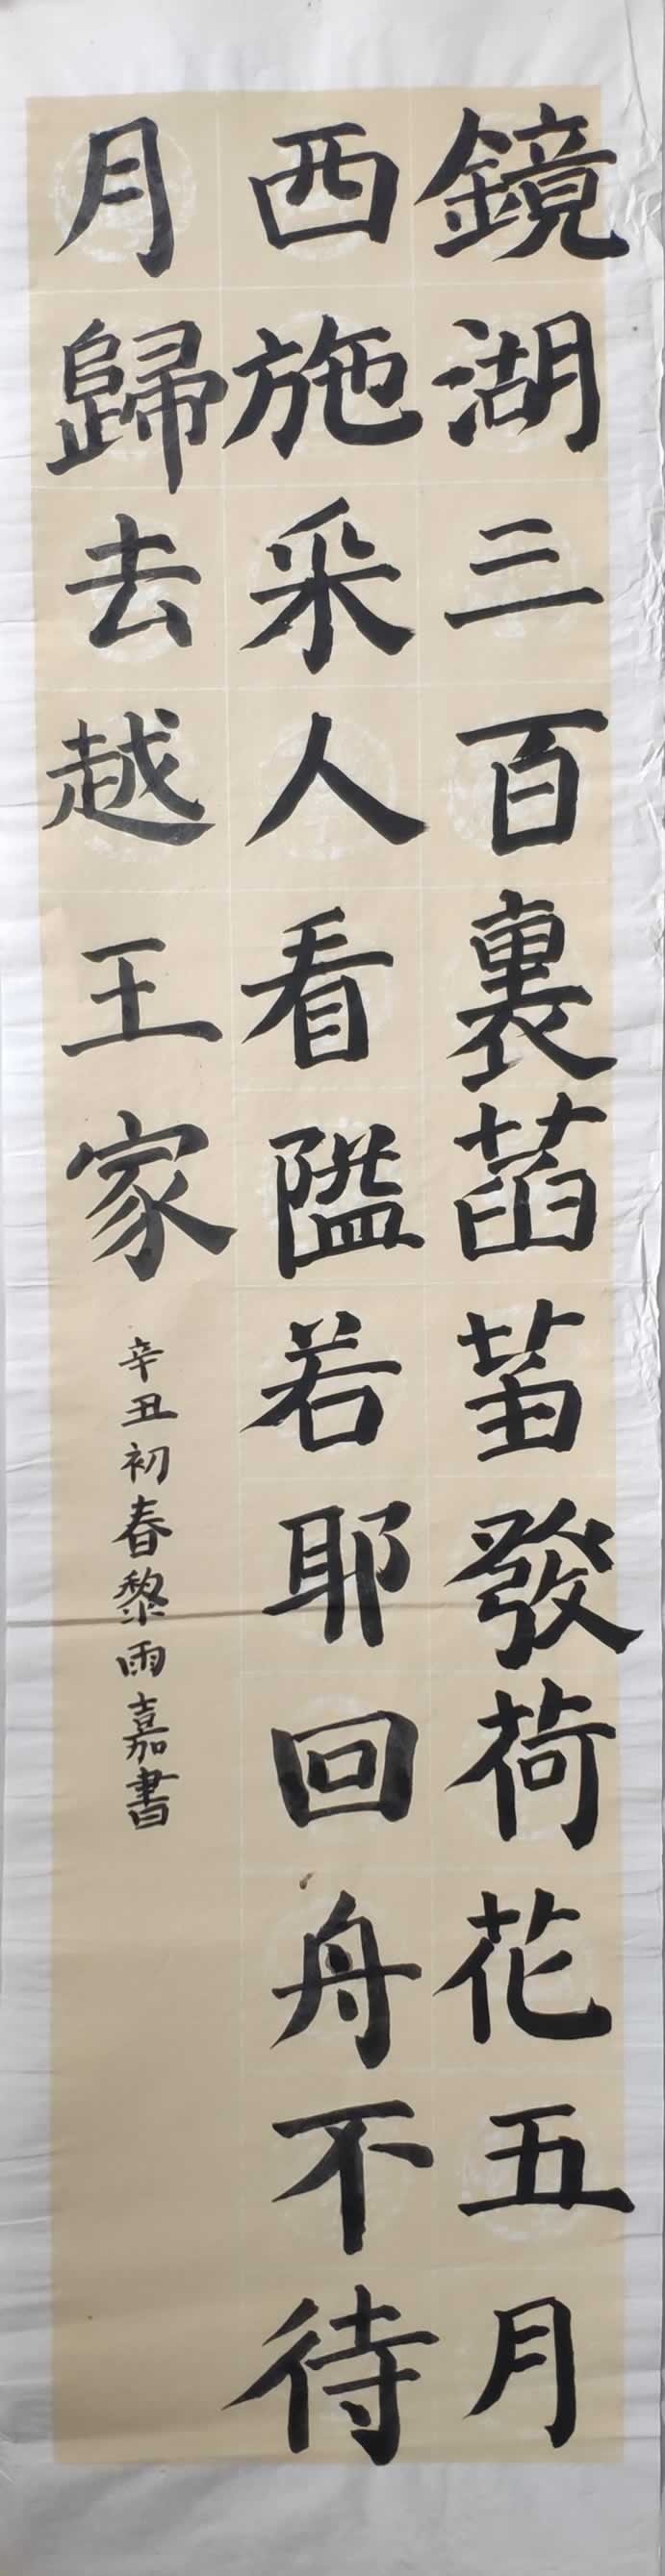 鏡湖三百裏菡萏發荷花五月
西施采人看隘若耶回舟不待
月歸去越王家
辛丑初春黎雨嘉書